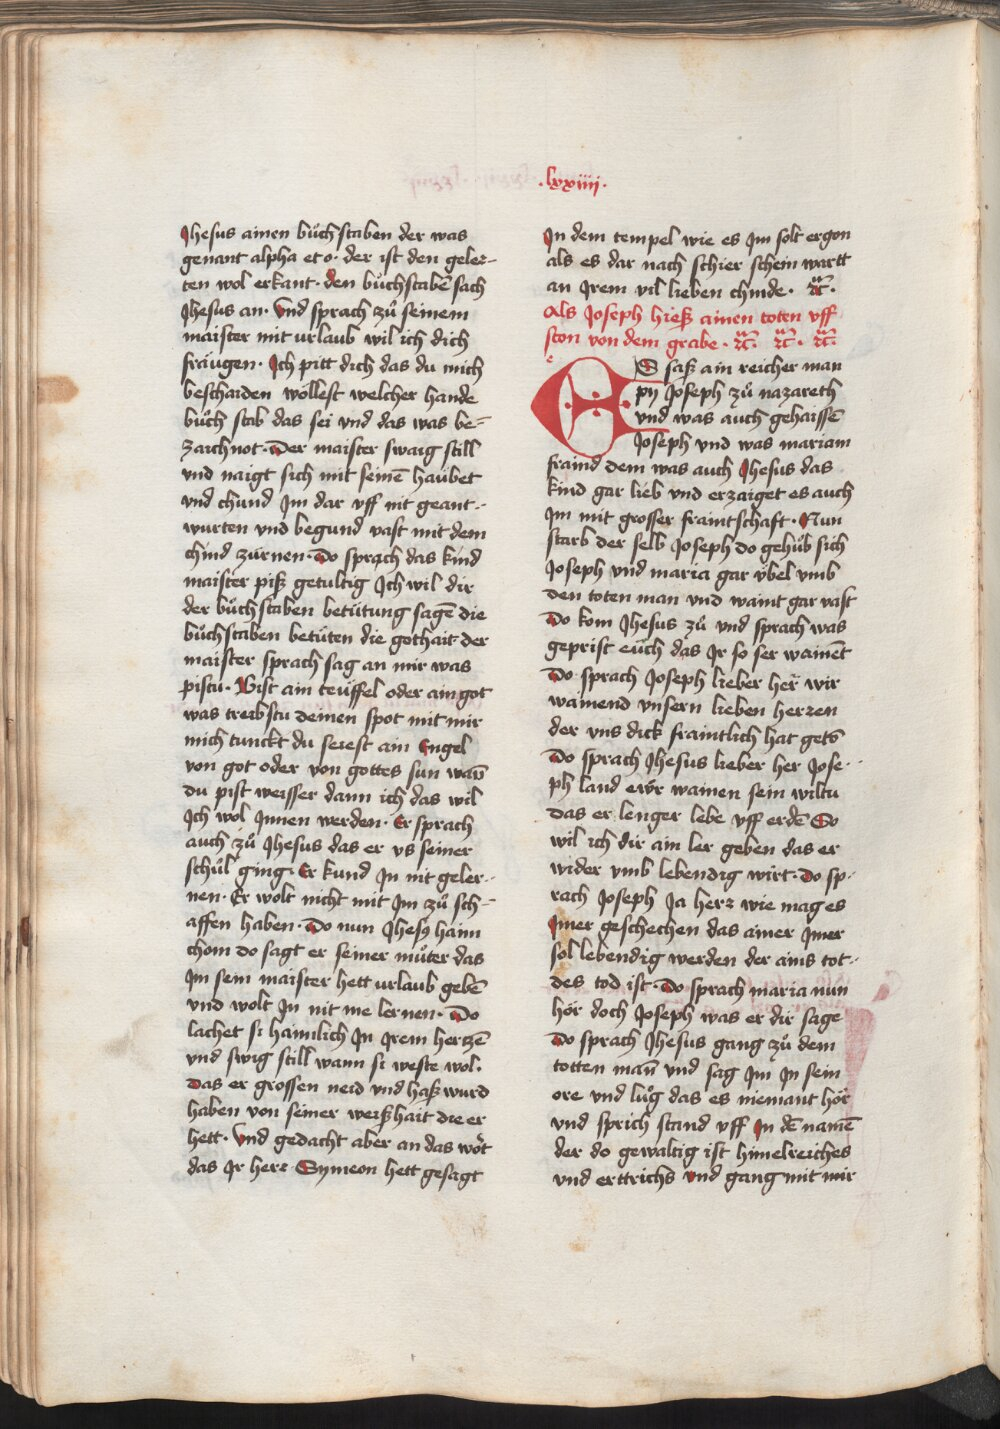 .lxxiiij.
Jhesus ainen bůchstaben der was
genant alpha et o· der ist den geler-
ten wol erkant· den bůchstabē sach
Jhesus an· Und sprach zů seinem
maister mit urlaub wil ich dich
fräugen· Ich pitt dich das du mich
beschaiden wöllest welcher hande
bůch stab das sei vnd das was be=
zaichnot· Der maister swaig still
vnd naigt sich mit seinē haübet
vnd chund Im dar vff nit geant-
wurten vnd begund vast mit dem
chind zürnen· Do sprach das kind
maister piß getultig Ich wil dir
der bůchstaben betütung sagē die
bůchstaben betüten die gothait· der
maister sprach sag an mir was
pistu· Bist ain teüffel oder ain got
was treibstu deinen spot mit mir
mich tunckt du seiest ain Engel
von got oder von gottes sun wañ
du pist weisser dann ich das wil
Ich wol Innen werden· Er sprach
auch zů Jhesus das er vs seiner
schůl ging· Er kund In nit geler-
nen· Er wolt nicht mit Im zů sch-
affen haben· Do nun Jhesꝰ haim
chom do sagt er seiner můter das
Im sein maister hett urlaub gebē
vnd wolt In nit me lernen· Do
lachet si haimlich In Irem hertzē
vnd swig still wann si weste wol·
Das er grossen neid vnd haß wurd
haben von seiner weißhait die er
hett· Und gedacht aber an das wort
das Ir herr Symeon hett gesagt
In dem tempel wie es Im solt ergon
als es dar nach schier schein wartt
an Irem vil lieben chinde· ꝛc̈·
Als Joseph hieß ainen toten vff
ston von dem grabe· ꝛc̈· ꝛc̈· ꝛc̈·
ES saß ain reicher man
pӱ Joseph zů nazareth
vnd was auch gehaissē
Joseph vnd was mariam
fraind dem was auch Jhesus das
kind gar lieb vnd erzaiget es auch
Im mit grosser fraintschaft· Nun
starb der selb Joseph do gehůb sich
Joseph vnd maria gar v̈bel vmb
den toten man vnd waint gar vast
Do kom Jhesus zů vnd sprach was
geprist eüch das Ir so ser wainēt
Do sprach Joseph lieber her wir
wainend vnsern lieben herren
der vns dick fraintlich hat getō
Do sprach Jhesus lieber her Jose-
ph land ewr̈ wainen sein wiltu
das er lenger lebe vff erdē So
wil ich dir ain ler geben das er
wider vmb lebendig wirt· Do sp-
rach Joseph Ja herr wie mag es
Imer geschechen das ainer Imer
sol lebendig werden der ains tot-
des tod ist· Do sprach maria nun
hör doch Joseph was er dir sage
Do sprach Jhesus gang zů dem
totten mañ vnd sag Im In sein
ore vnd lůg das es niemant hör
vnd sprich stand vff In dē namē
der do gewaltig ist himelreiches
vnd erttrichs vnd gang mit mir